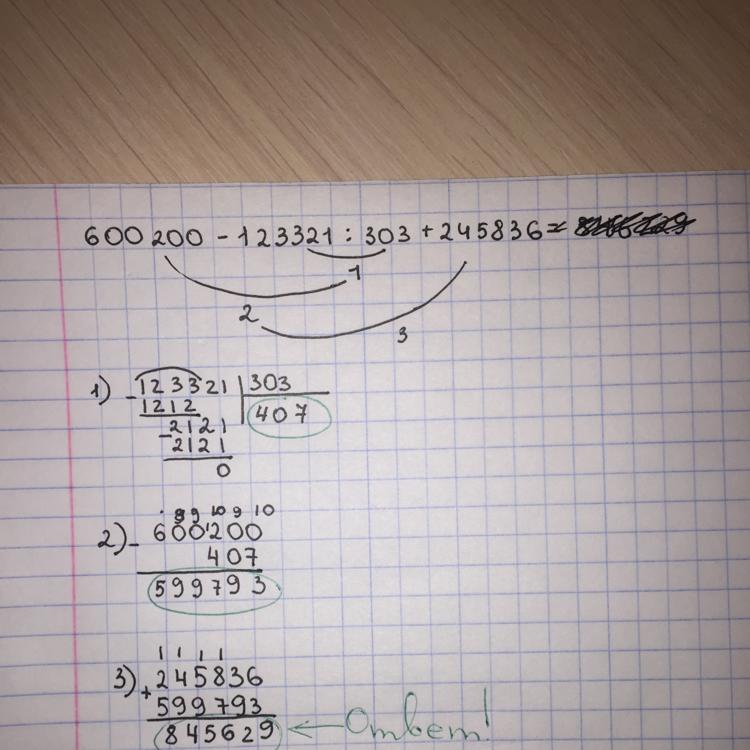 600200 - 123321 : 303 + 245836 =
1
2
3
1) - 123321 | 303
1212 407
- 2121
2121
0
9 9 10 9 10
2) - 600200
407
599793
1 1 1 1
3) + 245836
599793
845629 ← Ответ!